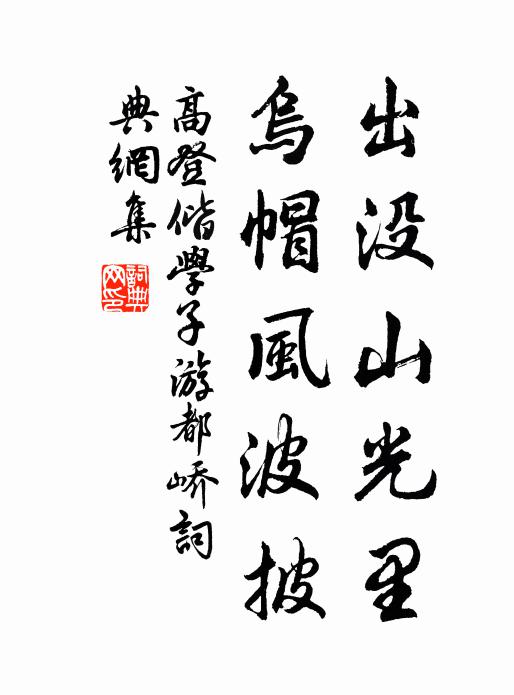 出没山光里
烏帽風波披
高登偕學子游都嶠詞
典網集
詞典
网印